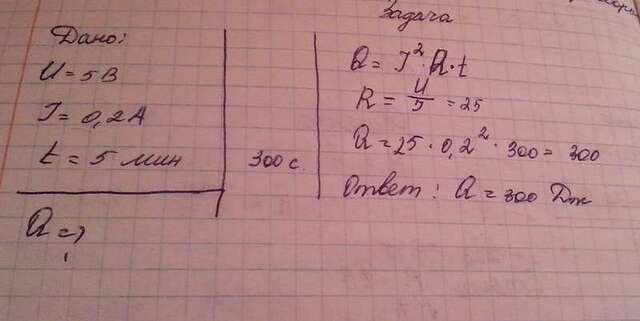 Задача
Дано:
U = 5 В
J = 0,2 А
t = 5 мин
300 с.
Q = ?
Q = J² · R · t
R = U/5 = 25
Q = 25 · 0,2² · 300 = 300
Ответ: Q = 300 Дж